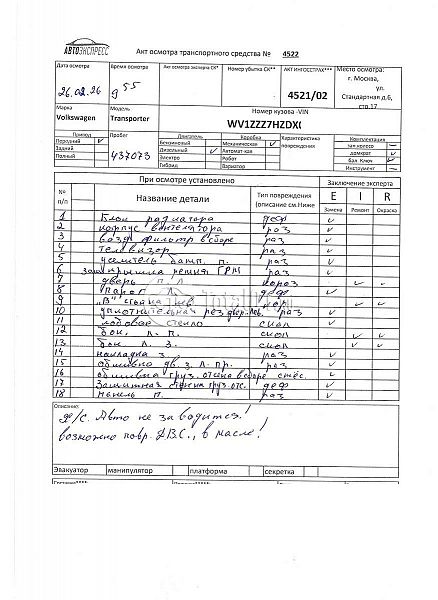 АВТОЭКСПРЕСС
Акт осмотра транспортного средства № 4522
Дата осмотра
Время осмотра
Акт осмотра эксперта СК*
Номер убытка СК**
АКТ ИНГОССТРАХ***
Место осмотра:
26.02.26
9 55
4521/02
г. Москва,
ул.
Стандартная д.6,
стр.17
Марка
Модель
Номер кузова -VIN
Volkswagen
Transporter
WV1ZZZ7HZDX
Привод
Пробег
Двигатель
Коробка
Характеристика повреждения
Комплектация
Передний
Бензиновый
Механическая
зап.колесо
Задний
437073
Дизельный
Автомат-кая
домкрат
Полный
Электро
Робот
бал. Ключ
Гибрид
Вариатор
Инструмент
При осмотре установлено
Заключение эксперта
№ п/п
Название детали
Тип повреждения (описание см.Ниже
E I R
Замена Ремонт Окраска
1 Блок радиатора деф
2 корпус вентилятора раз
3 возд. фильтр в сборе раз
4 телевизор раз
5 усилитель бамп. п. раз
6 защ. крышка ремня ГРМ раз
7 дверь п/л
8 порог л. деф
9 "В" стойка лев.
10 уплотнительная рез. двер. лев. раз
11 лобовое стекло скол
12 бок. л. п. скол
13 бок л. з. скол
14 накладка з. раз
15 обшивка дв. з. л. пр. раз
16 обшивка груз. отсека в сборе раз
17 Защитная стенка груз. отс. деф
18 панель п. раз
Описание:
Авто не заводится!
возможно повр. ДВС., в масле!
Эвакуатор
манипулятор
платформа
секретка